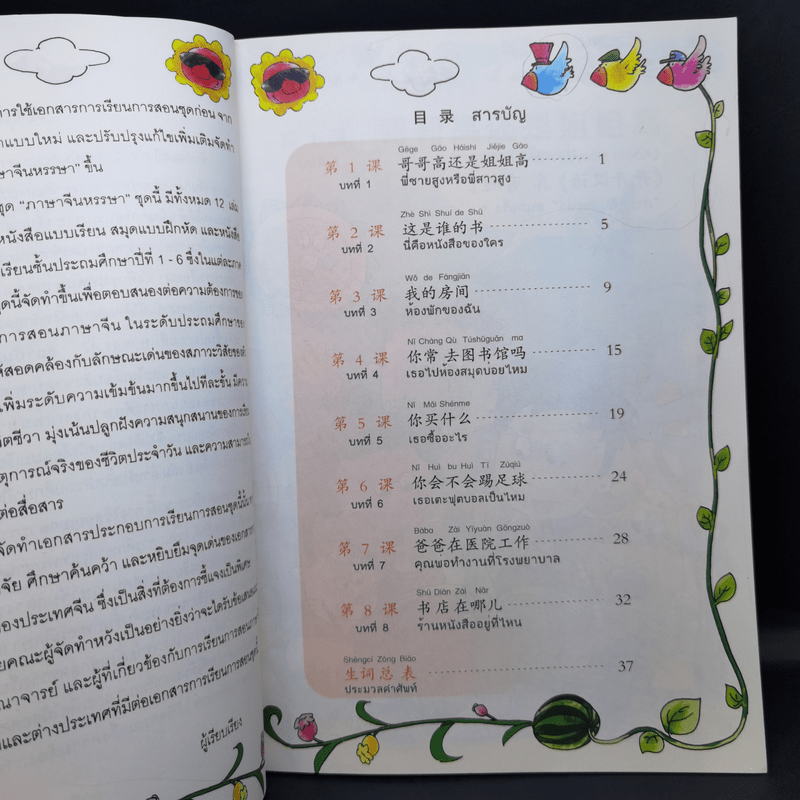 การใช้เอกสารการเรียนการสอนชุดก่อน จาก
แบบใหม่ และปรับปรุงแก้ไขเพิ่มเติมจัดทำ
ภาษาจีนหรรษา” ขึ้น
ชุด “ภาษาจีนหรรษา” ชุดนี้ มีทั้งหมด 12 เล่ม
หนังสือแบบเรียน สมุดแบบฝึกหัด และหนังสือ
เรียนชั้นประถมศึกษาปีที่ 1 - 6 ซึ่งในแต่ละภาค
ชุดนี้จัดทำขึ้นเพื่อตอบสนองต่อความต้องการของ
การสอนภาษาจีน ในระดับประถมศึกษาของ
ให้สอดคล้องกับลักษณะเด่นของสภาวะวิสัยของ
เพิ่มระดับความเข้มข้นมากขึ้นไปทีละขั้น มีความ
ชีวิตชีวา มุ่งเน้นปลูกฝังความสนุกสนานของการเรียน
เหตุการณ์จริงของชีวิตประจำวัน และความสามารถใน
ต่อสื่อสาร
จัดทำเอกสารประกอบการเรียนการสอนชุดนี้นั้น
วิจัย ศึกษาค้นคว้า และหยิบยืมจุดเด่นของเอกสาร
ของประเทศจีน ซึ่งเป็นสิ่งที่ต้องการชี้แจงเป็นพิเศษ
คณะผู้จัดทำหวังเป็นอย่างยิ่งว่าจะได้รับข้อเสนอแนะ
คณาจารย์ และผู้ที่เกี่ยวข้องกับการเรียนการสอนภาษา
และต่างประเทศที่มีต่อเอกสารการเรียนการสอนชุดนี้
ผู้เรียบเรียง
目 录 สารบัญ
Gēge Gāo Háishì Jiějie Gāo
第 1 课 哥哥高还是姐姐高 1
บทที่ 1 พี่ชายสูงหรือพี่สาวสูง
Zhè Shì Shuí de Shū
第 2 课 这是谁的书 5
บทที่ 2 นี่คือหนังสือของใคร
Wǒ de Fángjiān
第 3 课 我的房间 9
บทที่ 3 ห้องพักของฉัน
Nǐ Cháng Qù Túshūguǎn ma
第 4 课 你常去图书馆吗 15
บทที่ 4 เธอไปห้องสมุดบ่อยไหม
Nǐ Mǎi Shénme
第 5 课 你买什么 19
บทที่ 5 เธอซื้ออะไร
Nǐ Huì bu Huì Tī Zúqiú
第 6 课 你会不会踢足球 24
บทที่ 6 เธอเตะฟุตบอลเป็นไหม
Bàba Zài Yīyuàn Gōngzuò
第 7 课 爸爸在医院工作 28
บทที่ 7 คุณพ่อทำงานที่โรงพยาบาล
Shū Diàn Zài Nǎr
第 8 课 书店在哪儿 32
บทที่ 8 ร้านหนังสืออยู่ที่ไหน
Shēngcí Zǒng Biǎo
生词总表 37
ประมวลคำศัพท์